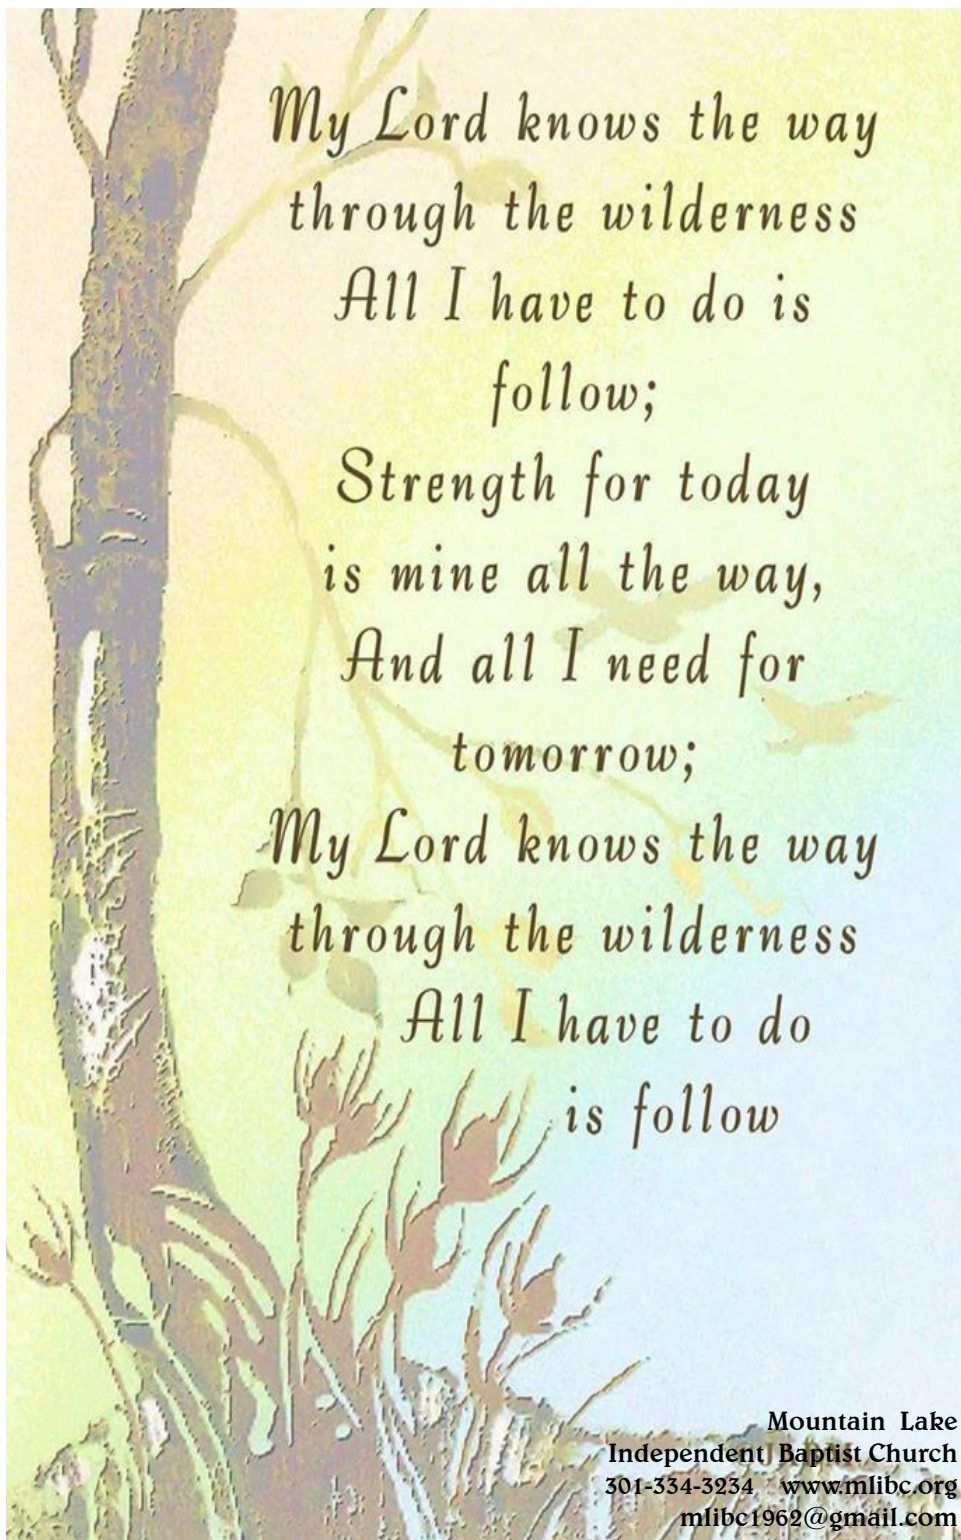 My Lord knows the way
through the wilderness
All I have to do is
follow;
Strength for today
is mine all the way,
And all I need for
tomorrow;
My Lord knows the way
through the wilderness
All I have to do
is follow
Mountain Lake
Independent Baptist Church
301-334-3234 www.mlibc.org
mlibc1962@gmail.com